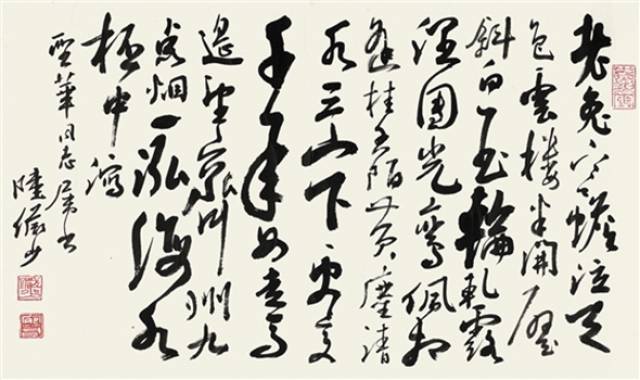 老兔寒蟾泣天
色雲樓半開壁
斜白玉輪軋露
溼團光鸞佩相
逢桂香陌黃塵清
水三山下更變
千年如走馬
遥望齊州九
點烟一泓海水
杯中瀉
聖華同志属书
陸儼少